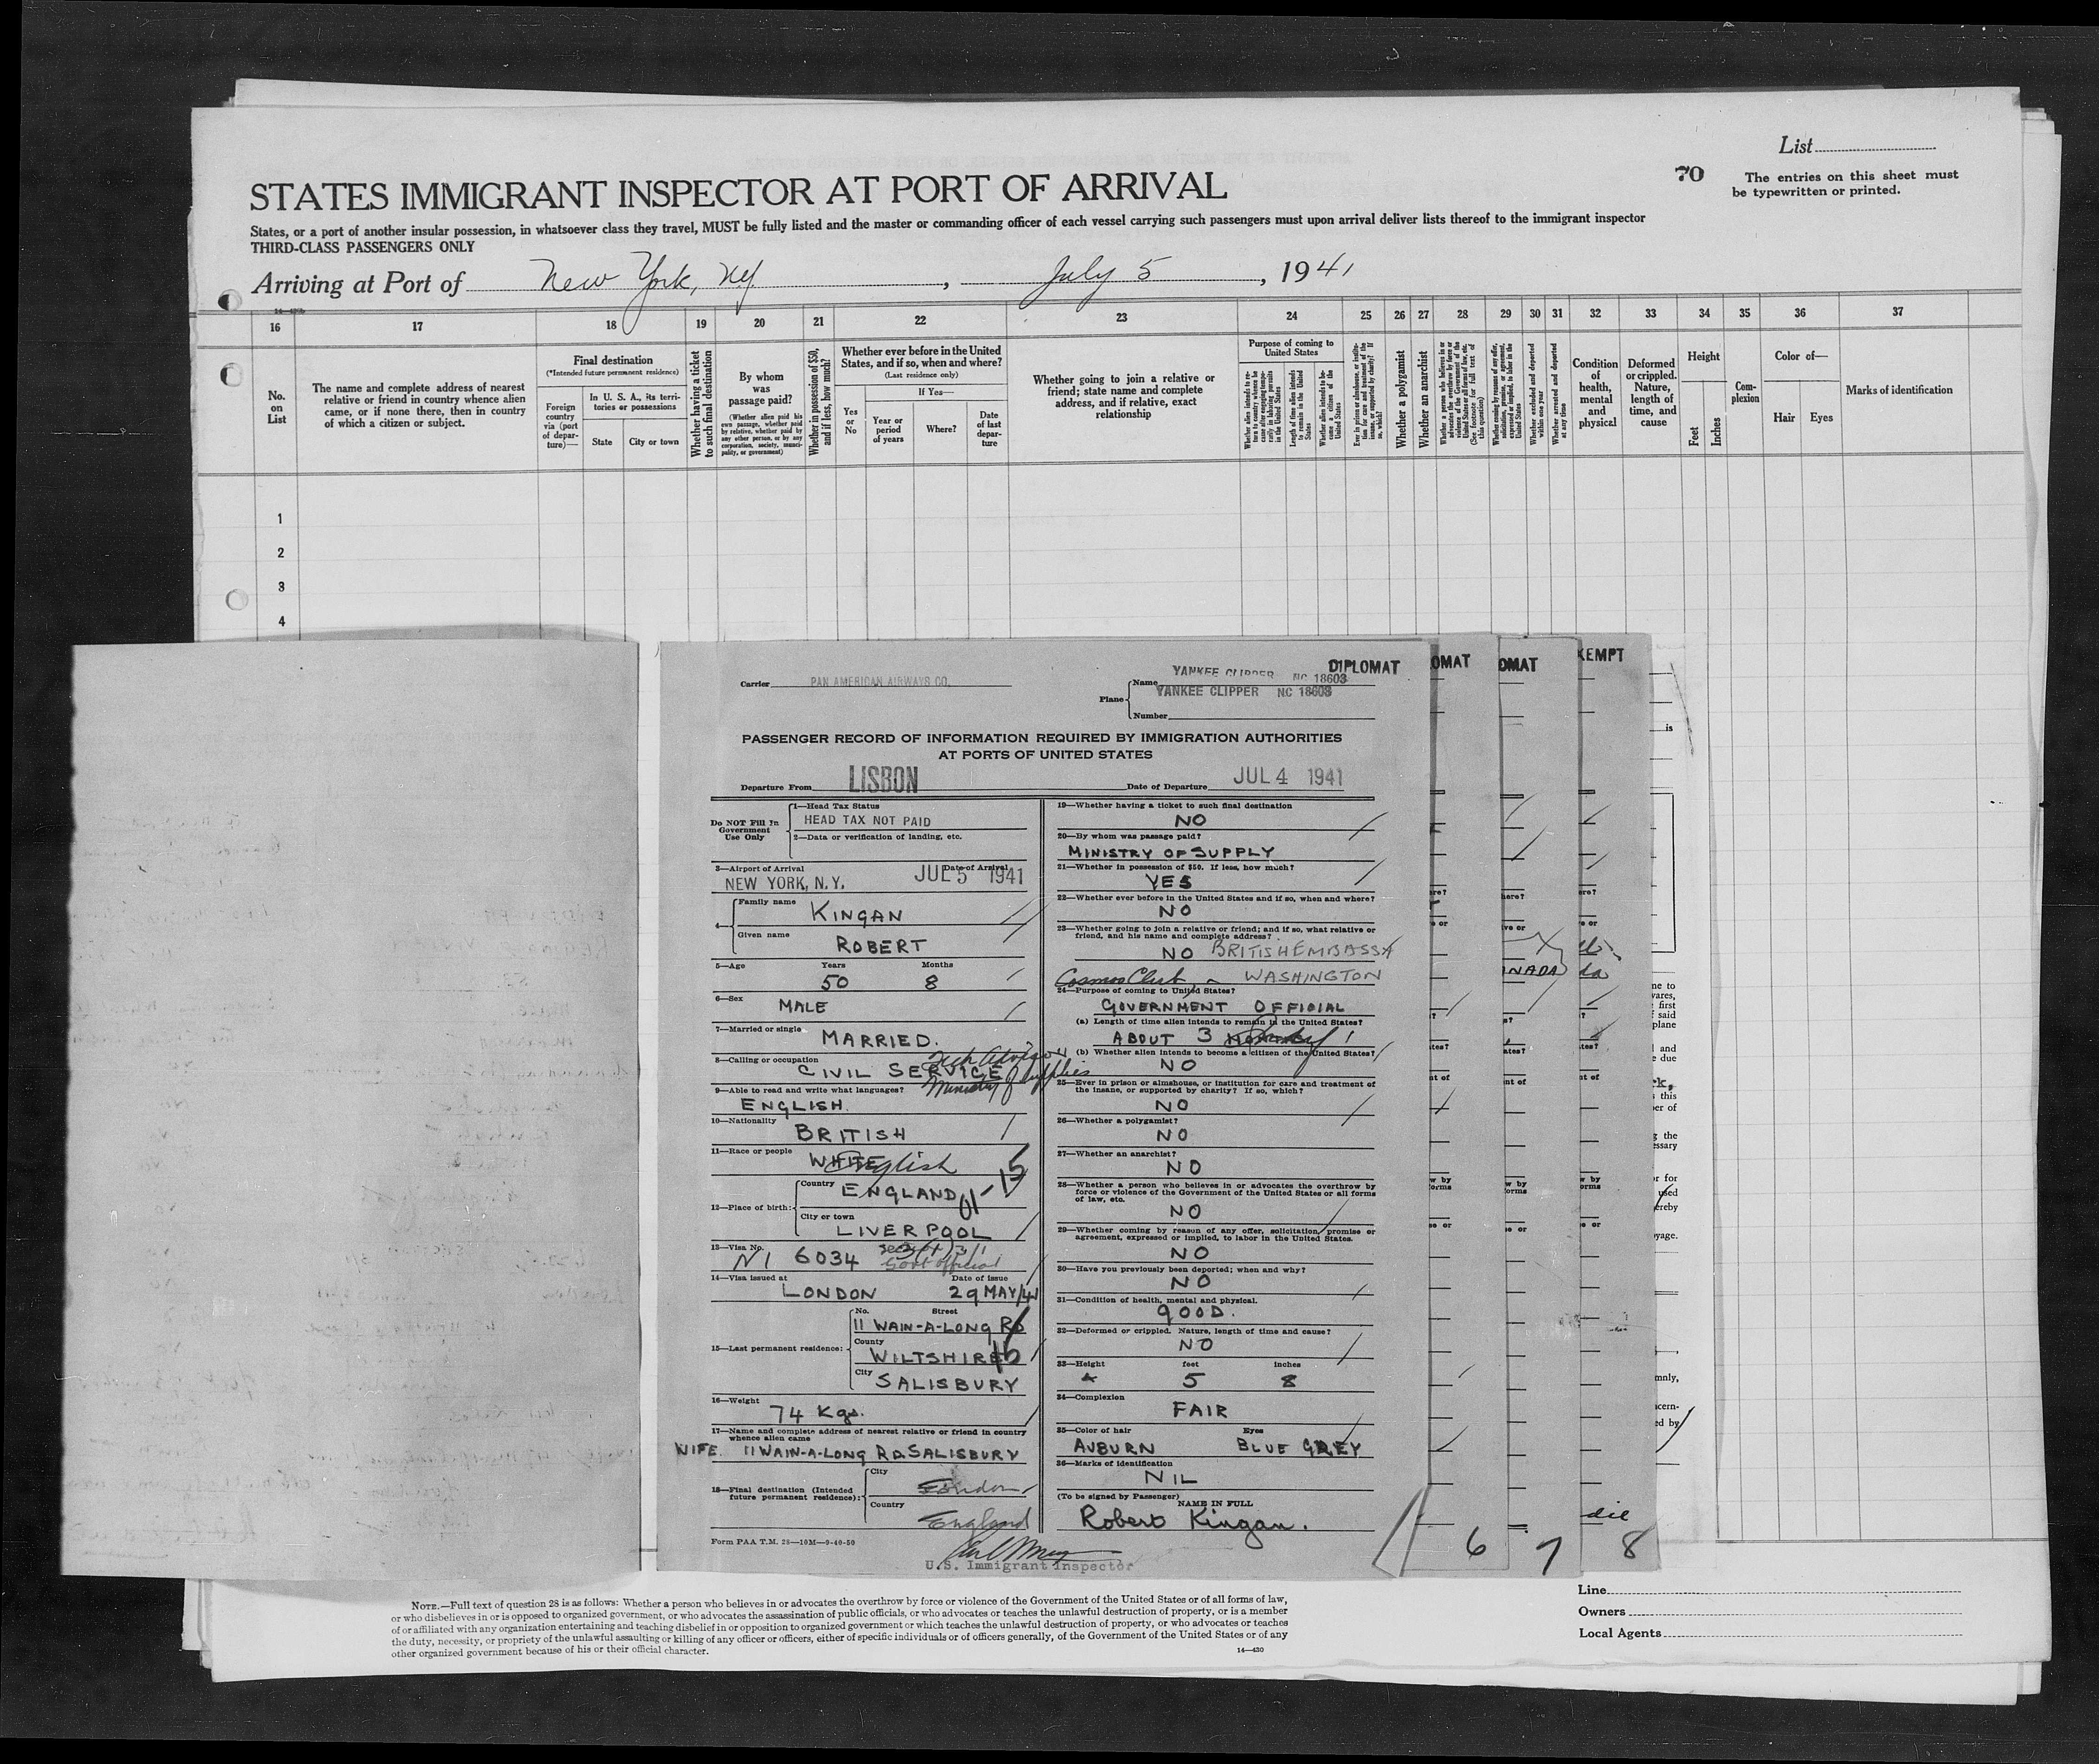 List
70
The entries on this sheet must
be typewritten or printed.
STATES IMMIGRANT INSPECTOR AT PORT OF ARRIVAL
States, or a port of another insular possession, in whatsoever class they travel, MUST be fully listed and the master or commanding officer of each vessel carrying such passengers must upon arrival deliver lists thereof to the immigrant inspector
THIRD-CLASS PASSENGERS ONLY
Arriving at Port of New York, NY, July 5, 1941
16 17 18 19 20 21 22 23 24 25 26 27 28 29 30 31 32 33 34 35 36 37
No. on List
The name and complete address of nearest
relative or friend in country whence alien
came, or if none there, then in country
of which a citizen or subject.
Final destination
(*Intended future permanent residence)
Foreign country via (port of departure)—
In U. S. A., its territories or possessions
State
City or town
Whether having a ticket to such final destination
By whom was passage paid?
(Whether alien paid his own passage, whether paid by relative, whether paid by any other person, or by any corporation, society, municipality, or government)
Whether in possession of $50, and if less, how much?
Whether ever before in the United
States, and if so, when and where?
(Last residence only)
Yes or No
If Yes—
Year or period of years
Where?
Date of last departure
Whether going to join a relative or
friend; state name and complete
address, and if relative, exact
relationship
Purpose of coming to
United States
Length of time alien intends to remain in the United States
Whether alien intends to become a citizen of the United States
Whether a polygamist
Whether an anarchist
Whether excluded and deported within one year
Whether arrested and deported at any time
Condition of health, mental and physical
Deformed or crippled. Nature, length of time, and cause
Height
Feet
Inches
Complexion
Color of—
Hair
Eyes
Marks of identification
1
2
3
4
Carrier PAN AMERICAN AIRWAYS CO.
DIPLOMAT
OMAT
OMAT
XEMPT
Plane
Name YANKEE CLIPPER NC 18603
YANKEE CLIPPER NC 18603
Number
PASSENGER RECORD OF INFORMATION REQUIRED BY IMMIGRATION AUTHORITIES
AT PORTS OF UNITED STATES
Departure From LISBON
Date of Departure JUL 4 1941
Do NOT Fill In
Government
Use Only
1—Head Tax Status
HEAD TAX NOT PAID
2—Data or verification of landing, etc.
3—Airport of Arrival Date of Arrival
NEW YORK, N.Y. JUL 5 1941
4— Family name KINGAN
Given name ROBERT
5—Age Years Months
50 8
6—Sex MALE
7—Married or single MARRIED.
8—Calling or occupation
CIVIL SERVICE Tech Advisor
Ministry of Supplies
9—Able to read and write what languages?
ENGLISH.
10—Nationality
BRITISH
11—Race or people
WHITE English
12—Place of birth: Country ENGLAND 01-15
City or town
LIVERPOOL
13—Visa No.
NI 6034 Sec 3(1)
Govt official
14—Visa issued at Date of issue
LONDON 29 MAY/41
15—Last permanent residence:
No. Street
11 WAIN-A-LONG RD
County
WILTSHIRE
City SALISBURY
16—Weight
74 Kgs.
17—Name and complete address of nearest relative or friend in country
whence alien came
WIFE 11 WAIN-A-LONG RD. SALISBURY
18—Final destination (Intended
future permanent residence):
City London
Country England
Form PAA T.M. 28—10M—9-40-50
U.S. Immigrant Inspector
19—Whether having a ticket to such final destination
NO
20—By whom was passage paid?
MINISTRY OF SUPPLY
21—Whether in possession of $50. If less, how much?
YES
22—Whether ever before in the United States and if so, when and where?
NO
23—Whether going to join a relative or friend; and if so, what relative or
friend, and his name and complete address?
NO BRITISH EMBASSY
Cosmos Club - WASHINGTON
24—Purpose of coming to United States?
GOVERNMENT OFFICIAL
(a) Length of time alien intends to remain in the United States?
ABOUT 3
(b) Whether alien intends to become a citizen of the United States?
NO
25—Ever in prison or almshouse, or institution for care and treatment of
the insane, or supported by charity? If so, which?
NO
26—Whether a polygamist?
NO
27—Whether an anarchist?
NO
28—Whether a person who believes in or advocates the overthrow by
force or violence of the Government of the United States or all forms
of law, etc.
NO
29—Whether coming by reason of any offer, solicitation, promise or
agreement, expressed or implied, to labor in the United States.
NO
30—Have you previously been deported; when and why?
NO
31—Condition of health, mental and physical.
GOOD.
32—Deformed or crippled. Nature, length of time and cause?
NO
33—Height feet inches
5 8
34—Complexion
FAIR
35—Color of hair Eyes
AUBURN BLUE GREY
36—Marks of identification
NIL
(To be signed by Passenger)
NAME IN FULL
Robert Kingan.
6 7 8
NOTE.—Full text of question 28 is as follows: Whether a person who believes in or advocates the overthrow by force or violence of the Government of the United States or of all forms of law,
or who disbelieves in or is opposed to organized government, or who advocates the assassination of public officials, or who advocates or teaches the unlawful destruction of property, or is a member
of or affiliated with any organization entertaining and teaching disbelief in or opposition to organized government or which teaches the unlawful destruction of property, or who advocates or teaches
the duty, necessity, or propriety of the unlawful assaulting or killing of any officer or officers, either of specific individuals or of officers generally, of the Government of the United States or of any
other organized government because of his or their official character.
14—430
Line
Owners
Local Agents